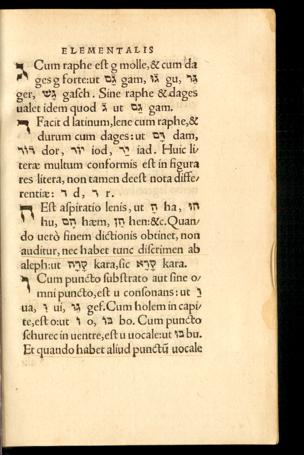 ELEMENTALIS
ג Cum raphe est g molle, & cum da
ges g forte: ut גַּם gam, גּוּ gu, גֵּר
ger, גַּשׁ gasch. Sine raphe & dages
ualet idem quod גּ ut גַם gam.
ד Facit d latinum, lene cum raphe, &
durum cum dages: ut דַּם dam,
דּוֹר dor, יוֹד iod, יַד iad. Huic li/
teræ multum conformis est in figura
res litera, non tamen deest nota diffe/
rentiæ: ד d, ר r.
ה Est aspiratio lenis, ut הָ ha, הוּ
hu, הֶם hæm, הֵן hen: &c. Quan/
do uerò finem dictionis obtinet, non
auditur, nec habet tunc discrimen ab
aleph: ut קָרָה kara, sic קָרָא kara.
ו Cum puncto substrato aut sine o/
mni puncto, est u consonans: ut וַ
ua, וִ ui, גֵו gef. Cum holem in capi/
te, est o: ut וֹ o, בּוֹ bo. Cum puncto
schurec in uentre, est u uocale: ut בּוּ bu.
Et quando habet aliud punctū uocale